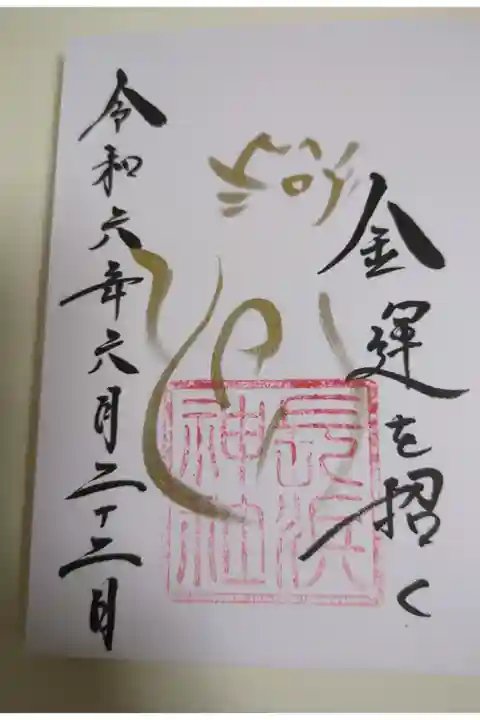 金運を招く
長浜
神社
令和六年六月二十二日